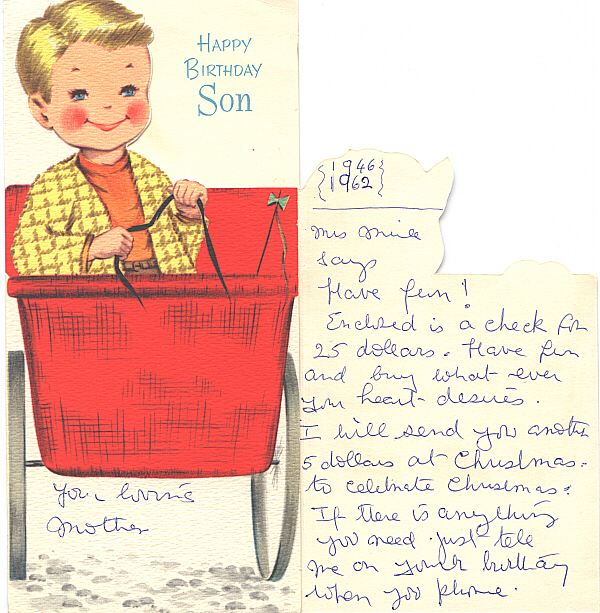 HAPPY
BIRTHDAY
Son
your loving
Mother
{1946}
{1962}
Mrs
says
Have fun!
Enclosed is a check for
25 dollars. Have fun
and buy what-ever
your heart desires.
I will send you another
5 dollars at Christmas.
to celebrate Christmas.
If there is anything
you need just tele
me on your birthday
when you phone.